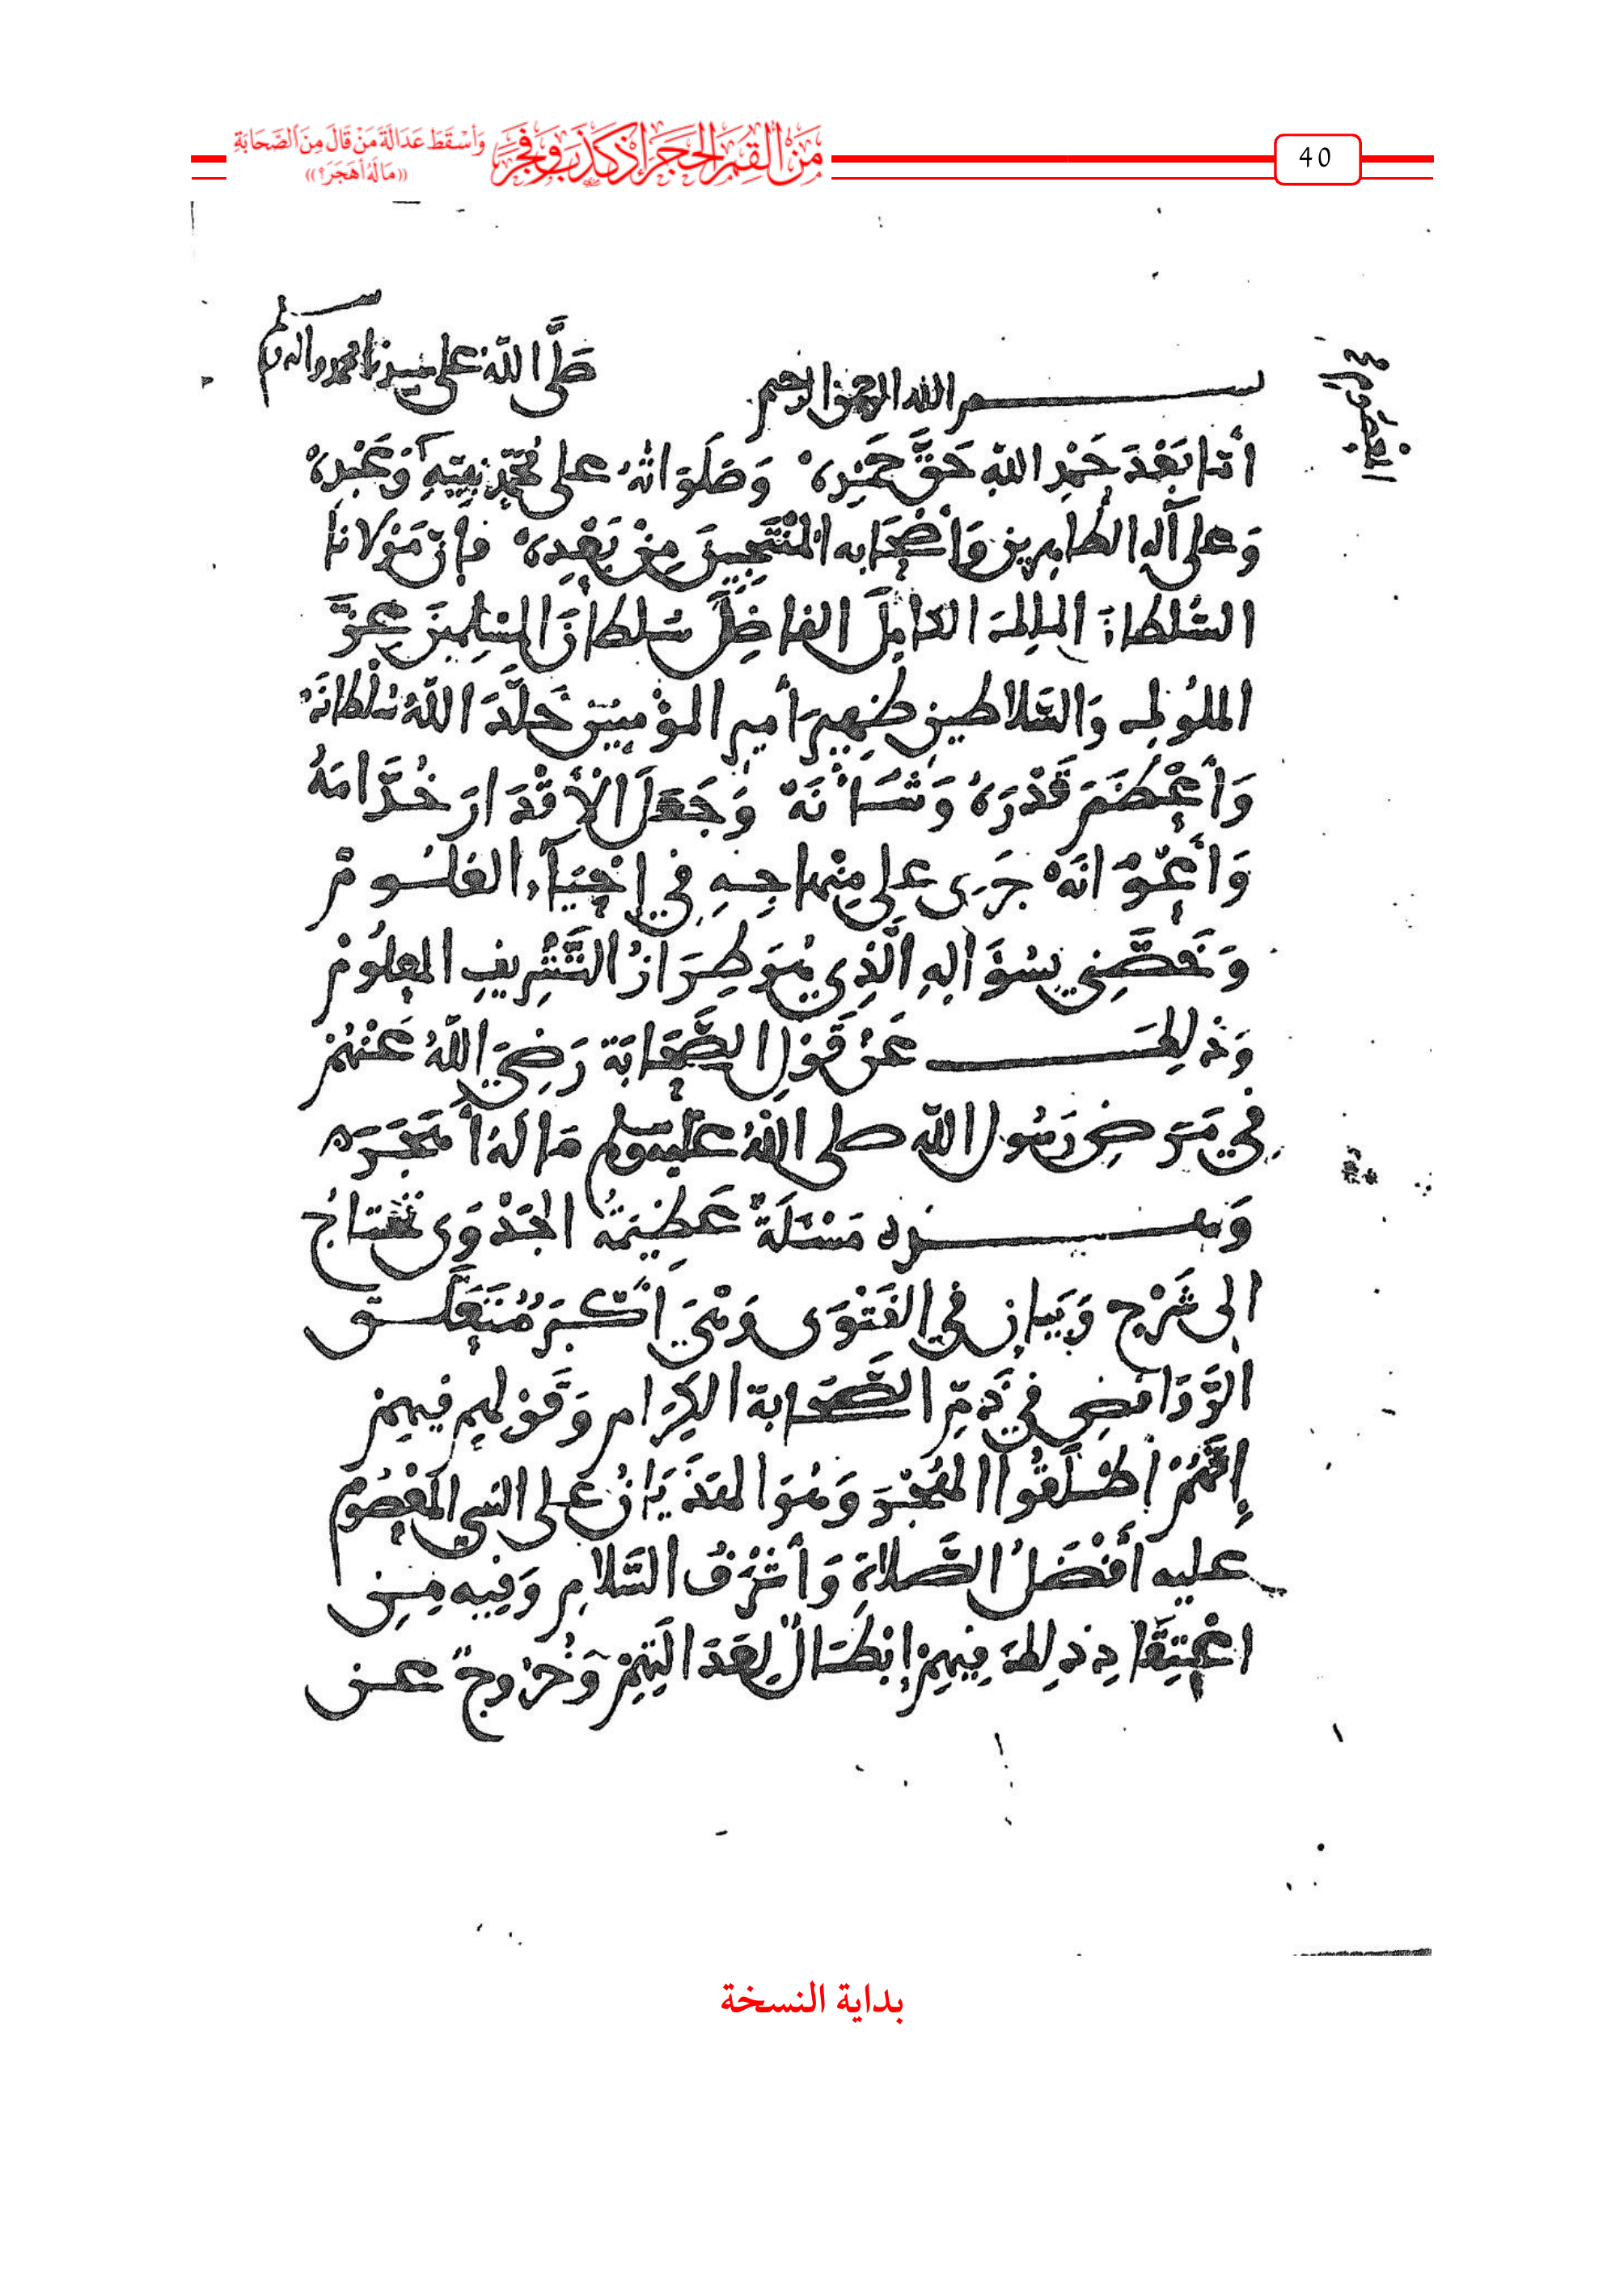 40
مَنْ أَلْقَمَ الحَجَرَ إِذْ كَذَبَ وَفَجَرَ
وَأَسْقَطَ عَدَالَةَ مَنْ قَالَ مِنَ الصَّحَابَةِ
((مَا لَهُ أَهَجَرَ؟))
بسم الله الرحمن الرحيم صَلَّى اللهُ على سيدنا محمد واله وسلم
أمّا بَعْدَ حَمْدِ اللهِ حَقَّ حَمْدِهِ وَصَلَوَاتُهُ على مُحَمَّدٍ نَبِيِّهِ وَعَبْدِهِ
وَعلى آلِهِ الطاهِرِين وَأَصْحَابِه المُنْتَجَبِينَ مِنْ بَعْدِهِ فَإِنّ مَوْلانا
السُّلطانَ الملِكَ الكامِلَ الفاضِلَ سُلطانَ المُسْلِمِينَ عِزَّ
المُلُوكِ وَالسَّلاطين ظَهِيرَ أمير المؤْمِنِينَ خَلَّدَ اللهُ سُلْطَانَهُ
وَأَعْظَمَ قَدْرَهُ وَشَأْنَهُ وَجَعَلَ الأَقْدَارَ خُدَّامَهُ
وَأَعْوَانَهُ جَرَى على مِنْهاجِهِ فِي إحْيَاءِ العُلُومْ
وَخَصَّنِي بسُؤَالِهِ الَّذِي هُوَ طِرَازُ التَّشْرِيفِ المعلُومْ
وَذَلِكَ عَنْ قَوْلِ الصَّحَابَة رَضِيَ اللهُ عَنْهُمْ
فِي مَرَضِ رَسُول الله صلى اللهُ عليه وسلم مَا لَهُ أَهَجَرَ
وَهذه مَسْئَلَةٌ عَظِيمَةُ الجَدْوَى تَحْتَاجُ
الى شَرْحٍ وَبَيانٍ فِي الفَتْوَى وَهْيَ أَكْبَرُ مُتَعَلَّقِ
الرَّوَافِضِ فِي ذَمِّ الصَّحَابة الكِرَامِ وَقَوْلِهِم فِيهِمْ
إِنَّهُمْ أَطْلَقُوا الهُجْرَ وَهُوَ الهَذَيَانُ على النبي المَعْصُومِ
عليه أَفْضَلُ الصَّلاةِ وَأَشْرَفُ السَّلامِ وَفِيه مِنِ
اعْتِقَادِ ذلِكَ فِيهِمْ إبْطَالٌ لِعَدَالَتِهِمْ وَخُرُوجٌ عن
بداية النسخة